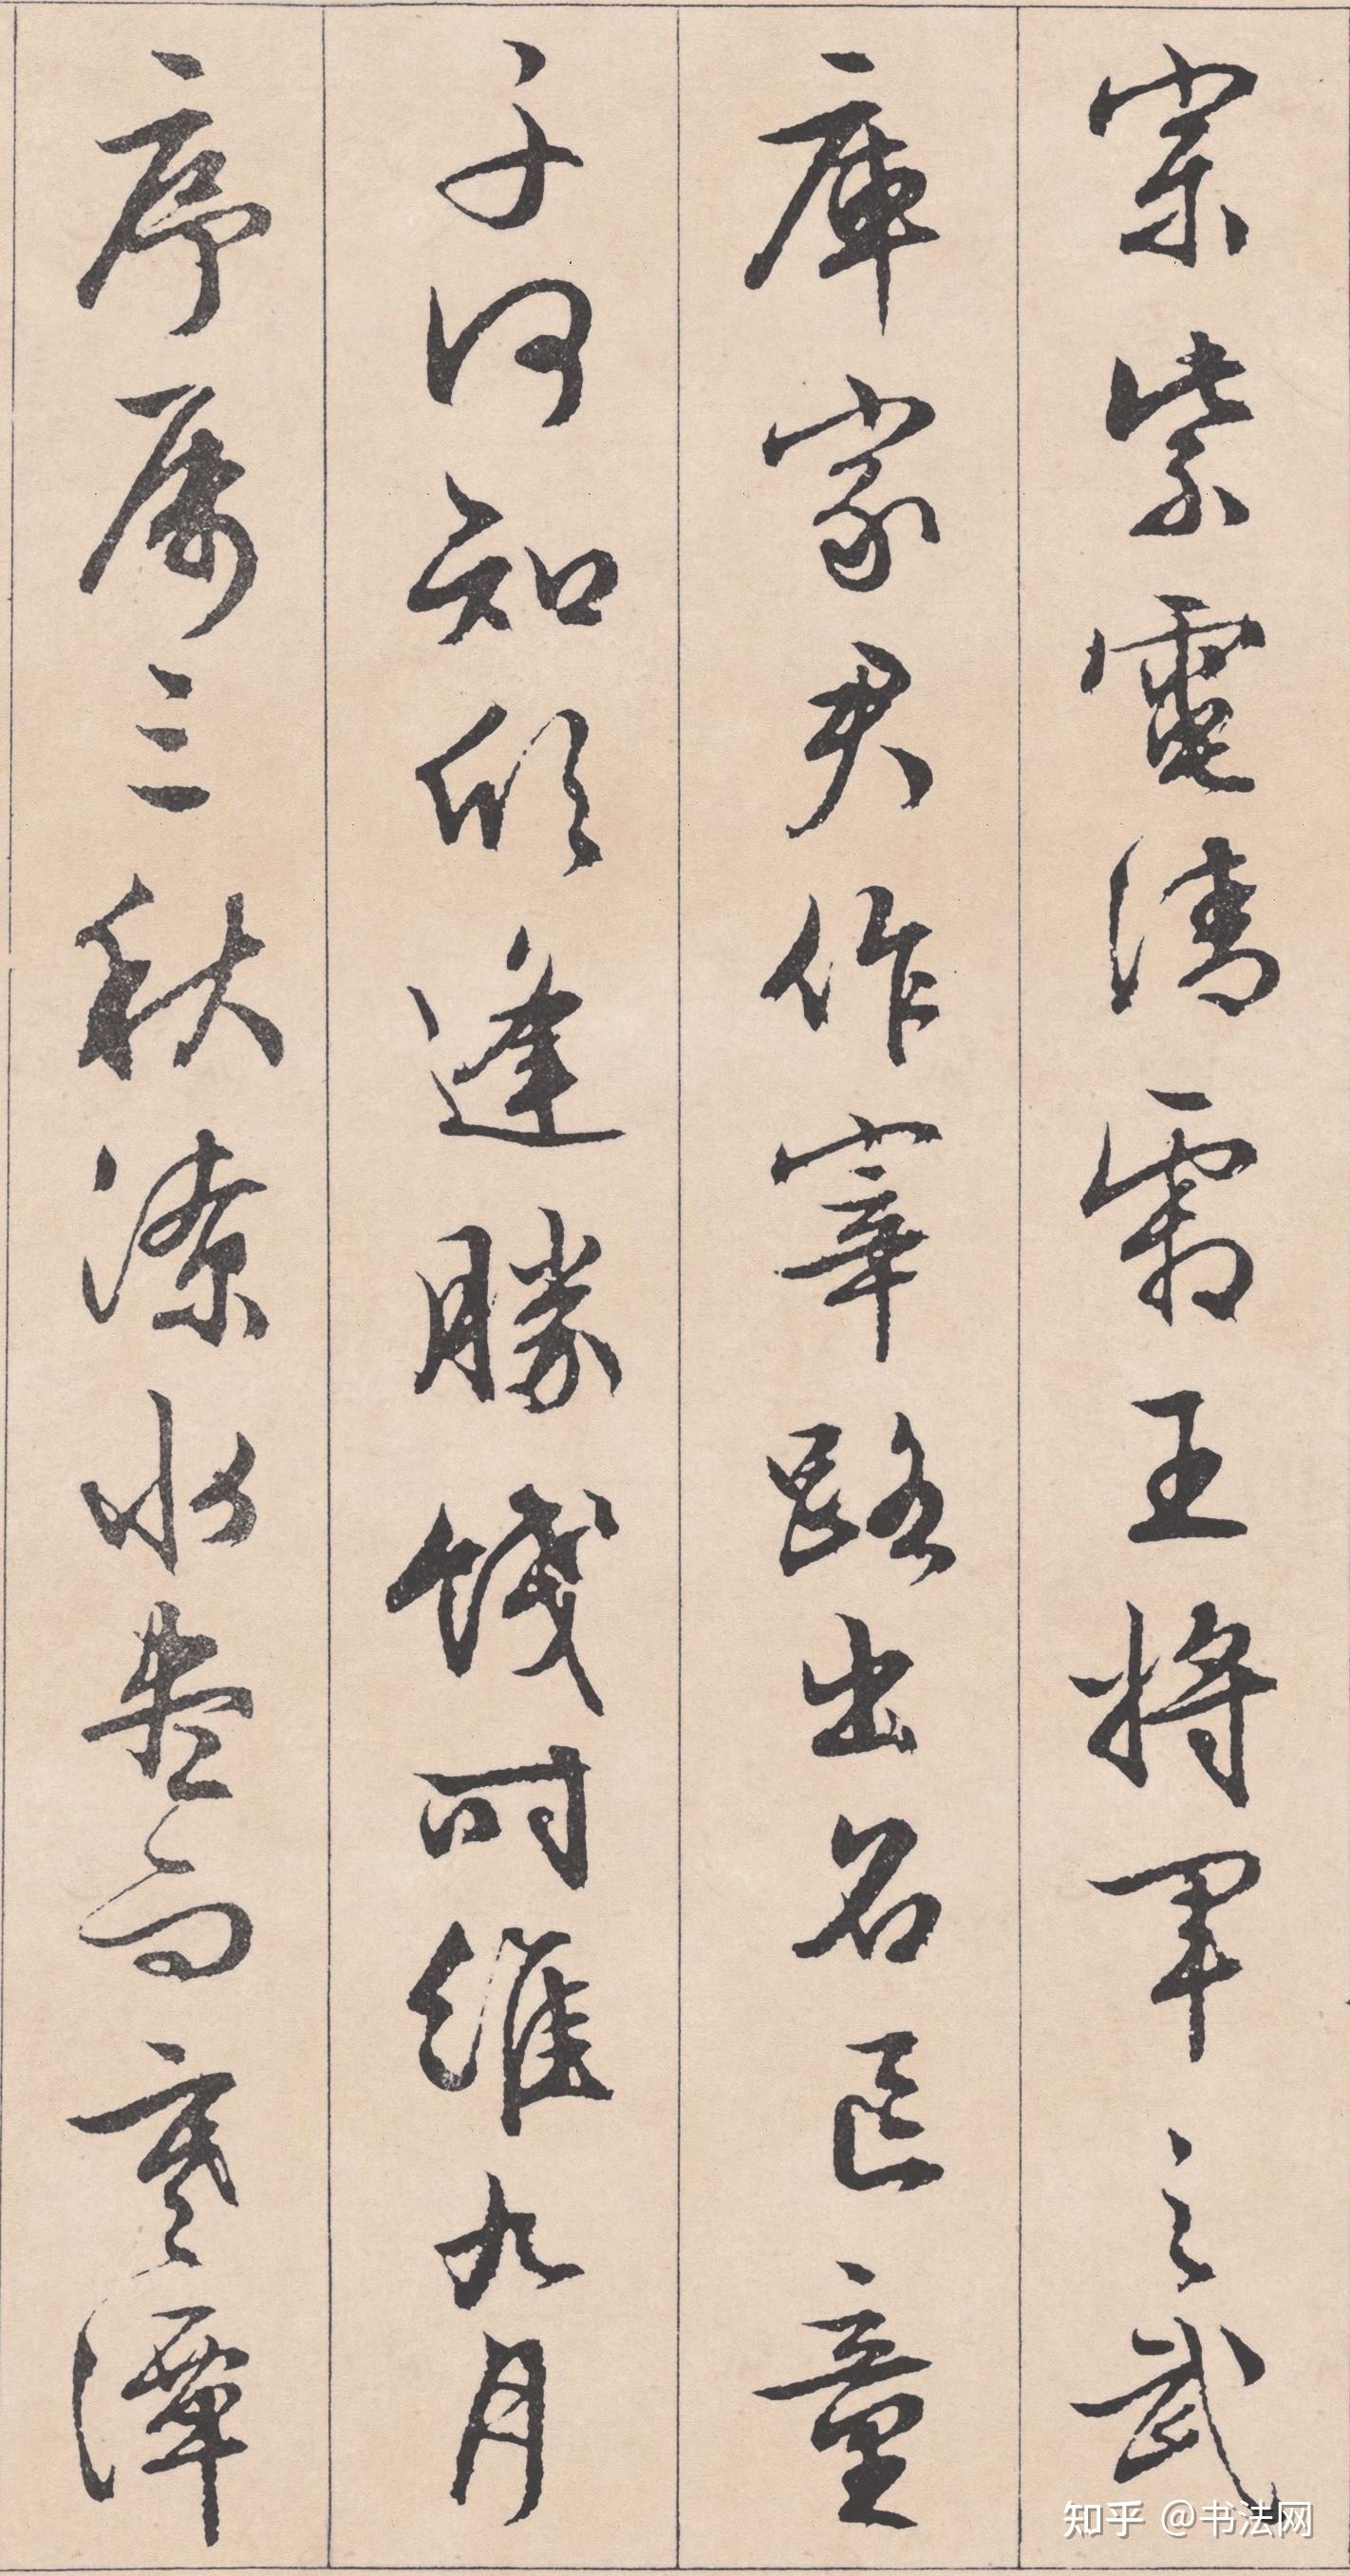 宗紫電清霜王將軍之武
庫家君作宰路出名區童
子何知躬逢勝餞時維九月
序屬三秋潦水盡而寒潭
知乎 @书法网